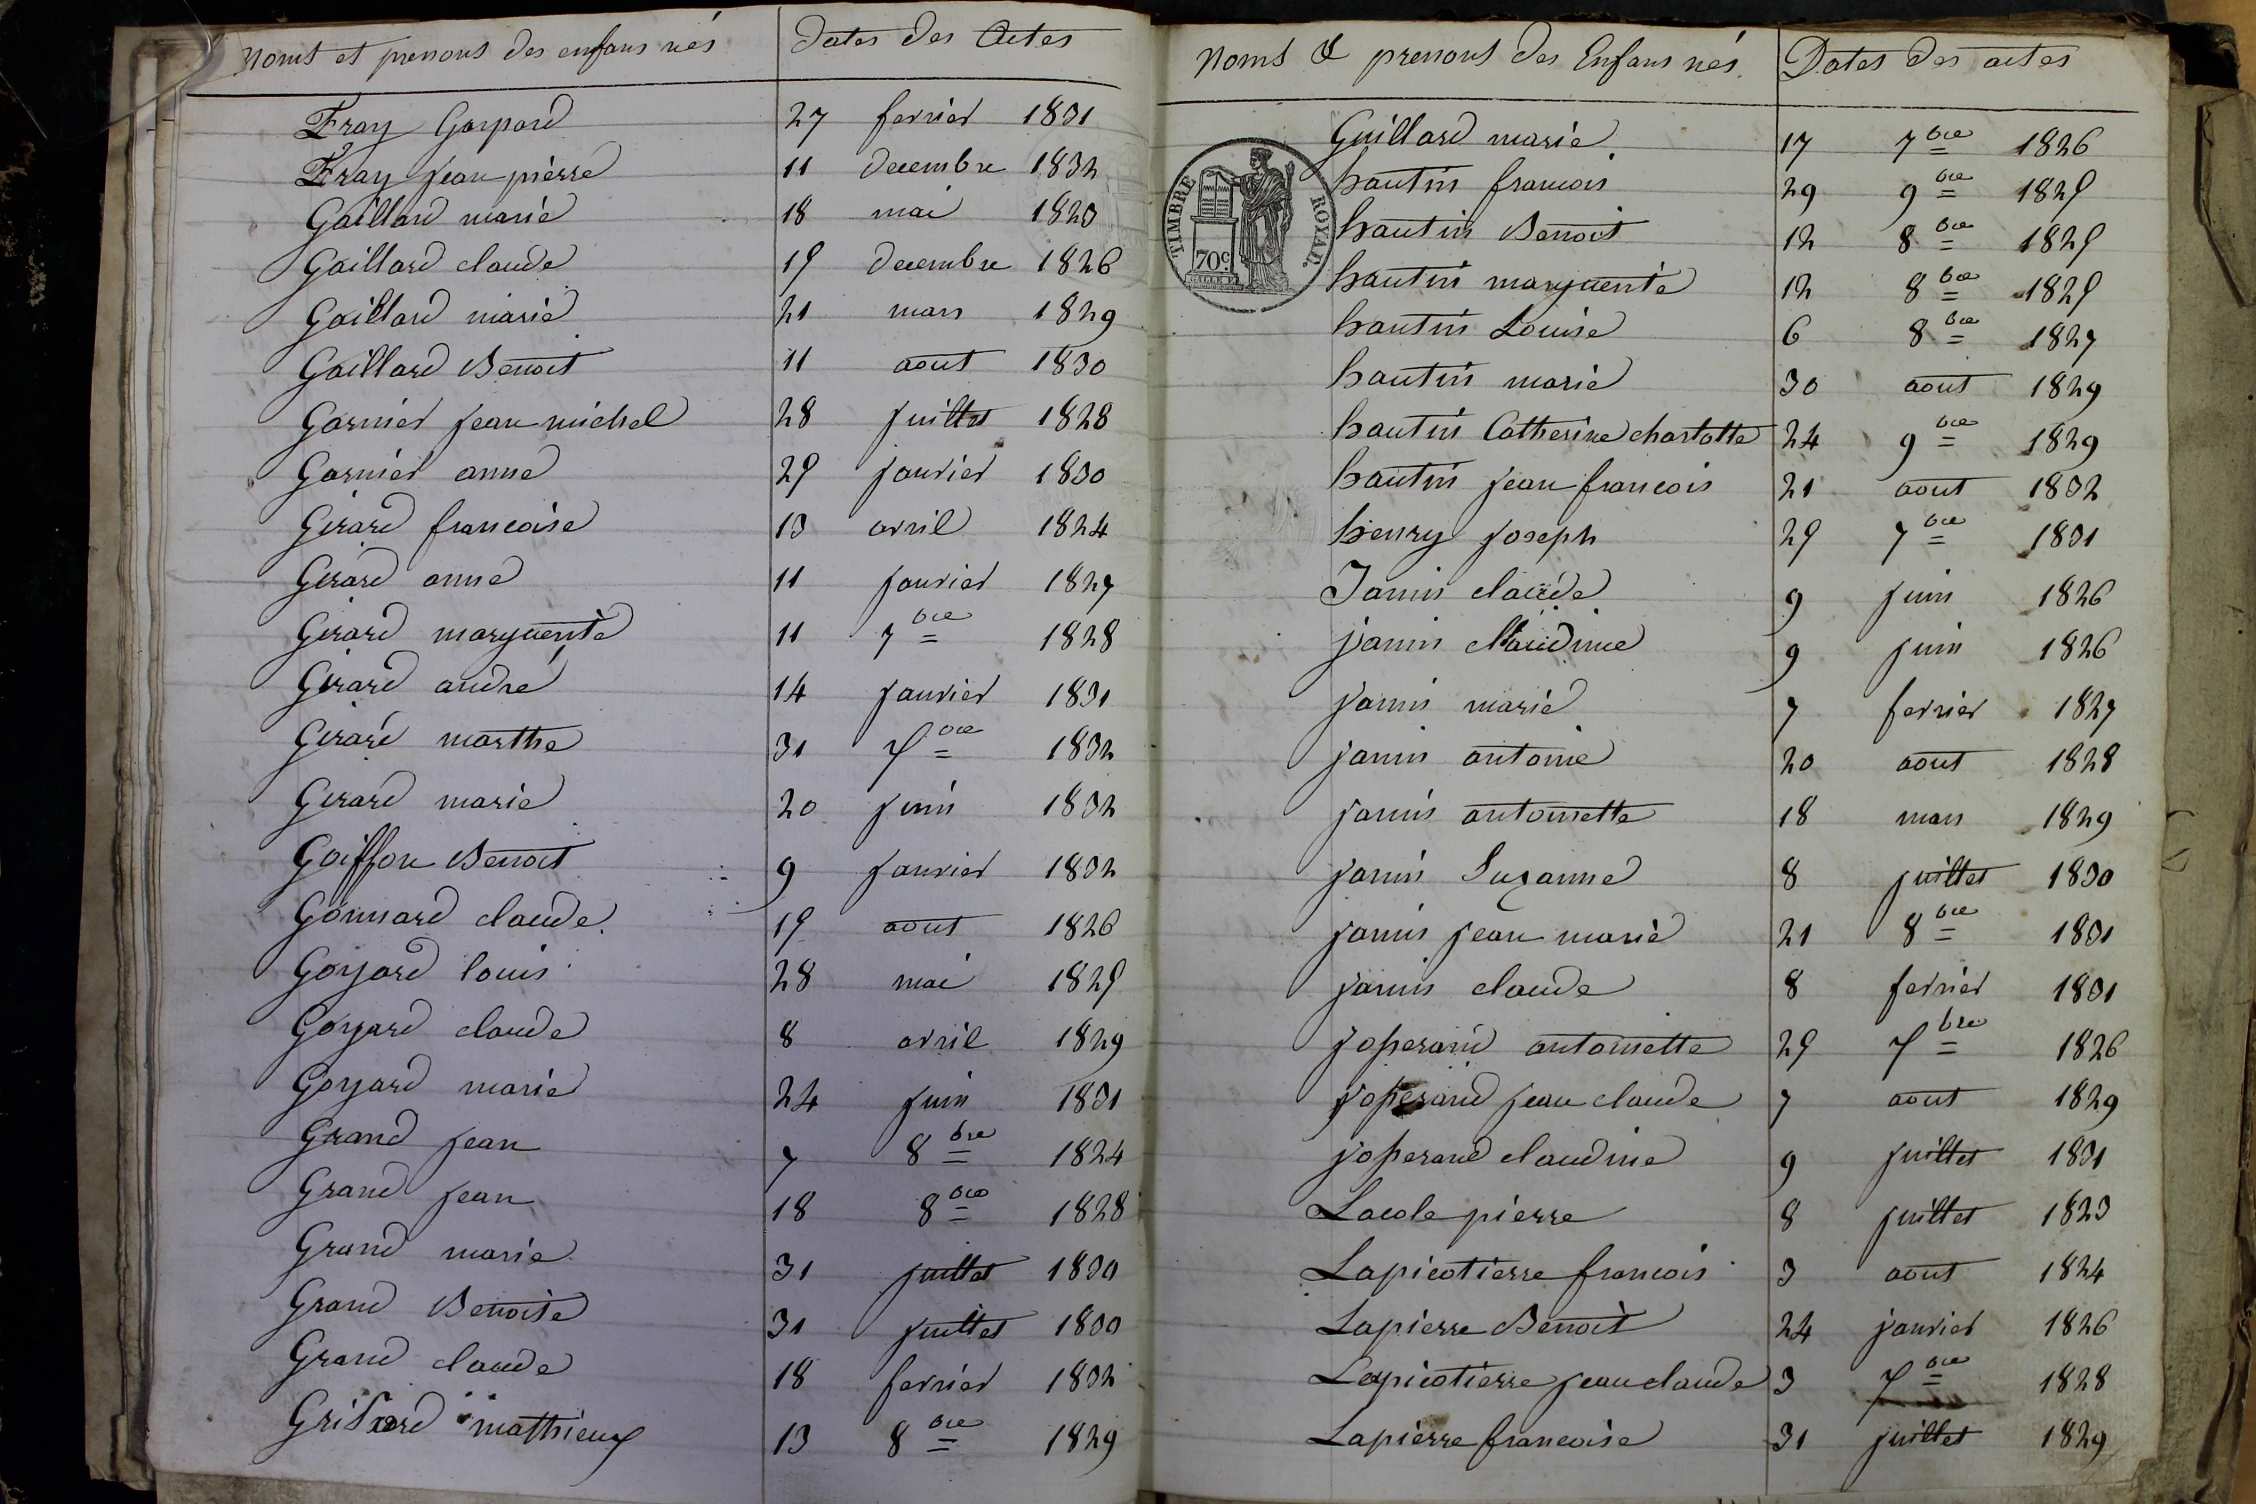 Noms et prenons des enfans nés dates des Actes
Fray Gaspard 27 fevrier 1831
Fray jean pierre 11 decembre 1832
Gaillard marie 18 mai 1823
Gaillard claude 15 decembre 1826
Gaillard marie 21 mars 1829
Gaillard Benoit 11 aout 1830
Garnier jean michel 28 juillet 1828
Garnier anne 25 janvier 1830
Girard francoise 13 avril 1824
Girard anne 11 janvier 1827
Girard marguerite 11 7bre 1828
Girard andré 14 janvier 1831
Girard marthe 31 Xbre 1832
Girard marie 20 juin 1832
Goiffon Benoit 9 janvier 1832
Gonnard claude 15 aout 1826
Goyard louis 28 mai 1825
Goyard claude 8 avril 1829
Goyard marie 24 juin 1831
Grand jean 7 8bre 1824
Grand jean 18 8bre 1828
Grand marie 31 juillet 1830
Grand Benoite 31 juillet 1830
Grand claude 18 fevrier 1832
Grisard mathieux 13 8bre 1829
Noms & prenons des Enfans nés Dates des actes
TIMBRE ROYAL.
70c.
Guillard marie 17 7bre 1826
hautin francois 29 9bre 1825
hautin Benoit 12 8bre 1825
hautin marguerite 12 8bre 1825
hautin Louise 6 8bre 1827
hautin marie 30 aout 1829
hautin Catherine charlotte 24 9bre 1829
hautin jean francois 21 aout 1832
henry joseph 25 7bre 1831
Janin claude 9 juin 1826
janin claudine 9 juin 1826
janin marie 7 fevrier 1827
janin antoine 20 aout 1828
janin antoinette 18 mars 1829
janin Suzanne 8 juillet 1830
janin jean marie 21 8bre 1831
janin claude 8 fevrier 1831
josserand antoinette 25 Xbre 1826
josserand jean claude 7 aout 1829
josserand claudine 9 juillet 1831
Lacole pierre 8 juillet 1823
Lapicotierre francois 3 aout 1824
Lapierre Benoit 24 janvier 1826
Lapicotierre jean claude 3 Xbre 1828
Lapierre francoise 31 juillet 1829